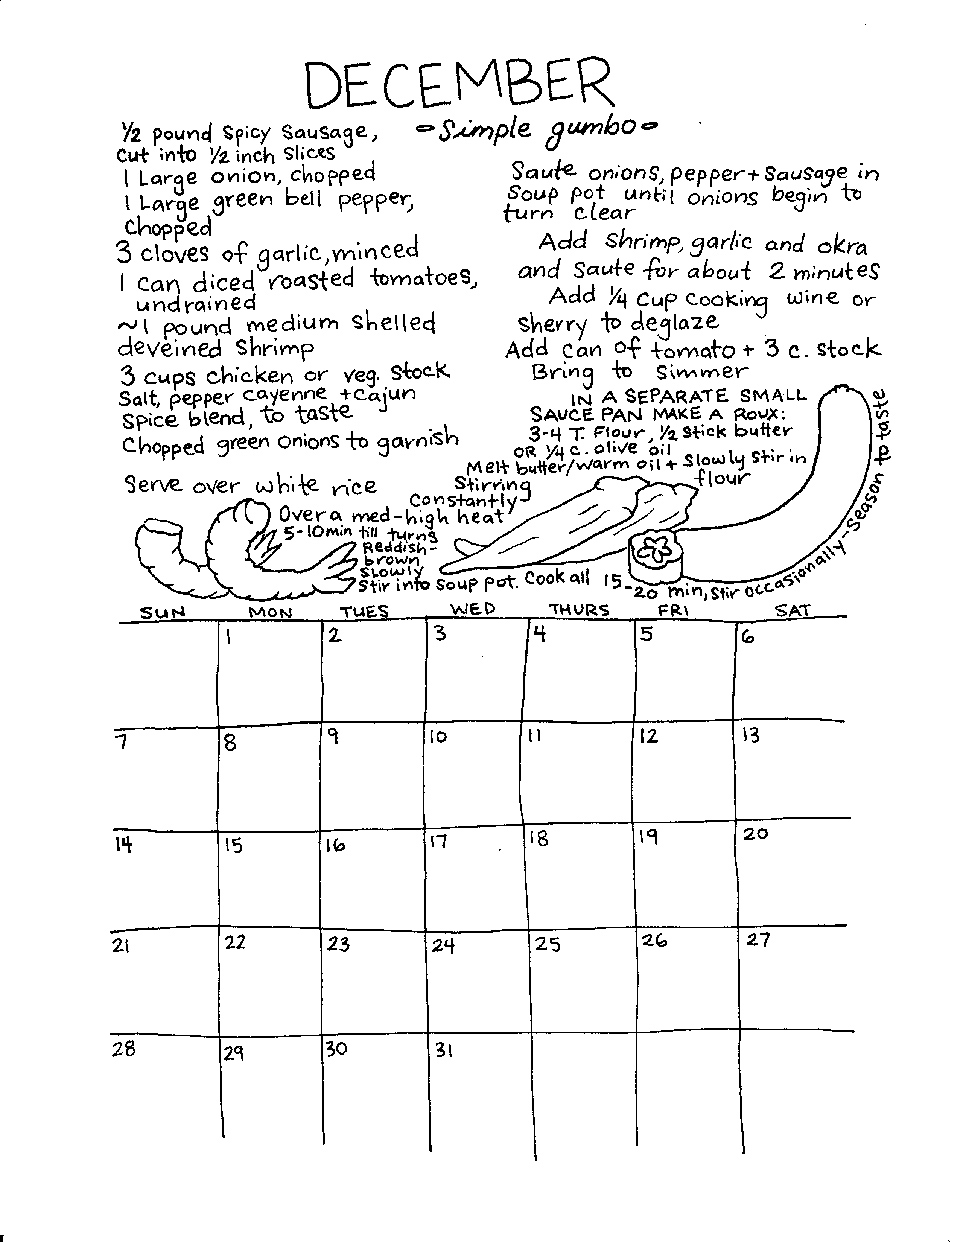 DECEMBER
~Simple gumbo~
½ pound Spicy Sausage,
cut into ½ inch slices
1 Large onion, chopped
1 Large green bell pepper,
chopped
3 cloves of garlic, minced
1 can diced roasted tomatoes,
undrained
~1 pound medium shelled
deveined Shrimp
3 cups chicken or veg. stock
Salt, pepper cayenne + cajun
spice blend, to taste
Chopped green onions to garnish
Serve over white rice
Saute onions, pepper + Sausage in
Soup pot until onions begin to
turn clear
Add Shrimp, garlic and okra
and Saute for about 2 minutes
Add ¼ cup cooking wine or
Sherry to deglaze
Add can of tomato + 3 c. stock
Bring to Simmer
IN A SEPARATE SMALL
SAUCE PAN MAKE A ROUX:
3-4 T. Flour, ½ stick butter
OR ¼ c. olive oil
Melt butter/warm oil + Slowly Stir in
flour
Stirring
Constantly
Over a med-high heat
5-10min till turns
Reddish-
brown
SLOWLY
Stir into Soup pot. Cook all 15-20 min, Stir occasionally-Season to taste
SUN MON TUES WED THURS FRI SAT
1 2 3 4 5 6
7 8 9 10 11 12 13
14 15 16 17 18 19 20
21 22 23 24 25 26 27
28 29 30 31